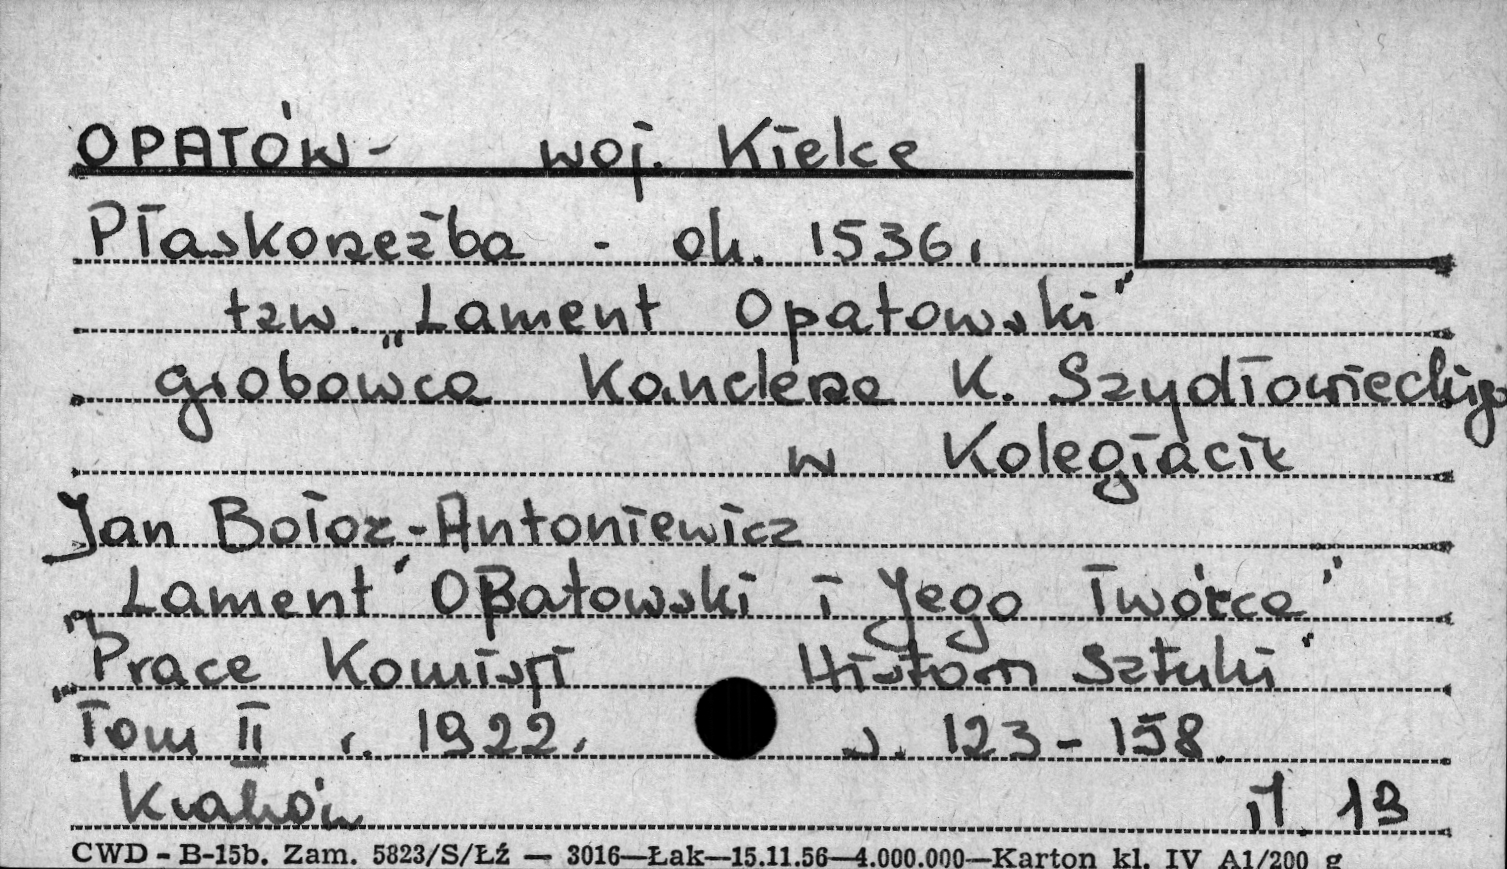 OPATÓW - woj. Kielce
Płaskorzeźba - ok. 1536.
tzw. "Lament Opatowski"
grobowca Kanclerza K. Szydłowieckiego
w Kolegiacie
Jan Bołoz-Antoniewicz
"Lament Opatowski i Jego Twórca"
"Prace Komisji Historii Sztuki"
Tom II r. 1922. s. 123-158.
Kraków il. 19
CWD - B-15b. Zam. 5823/S/Łź — 3016—Łak—15.11.56—4.000.000—Karton kl. IV A1/200 g